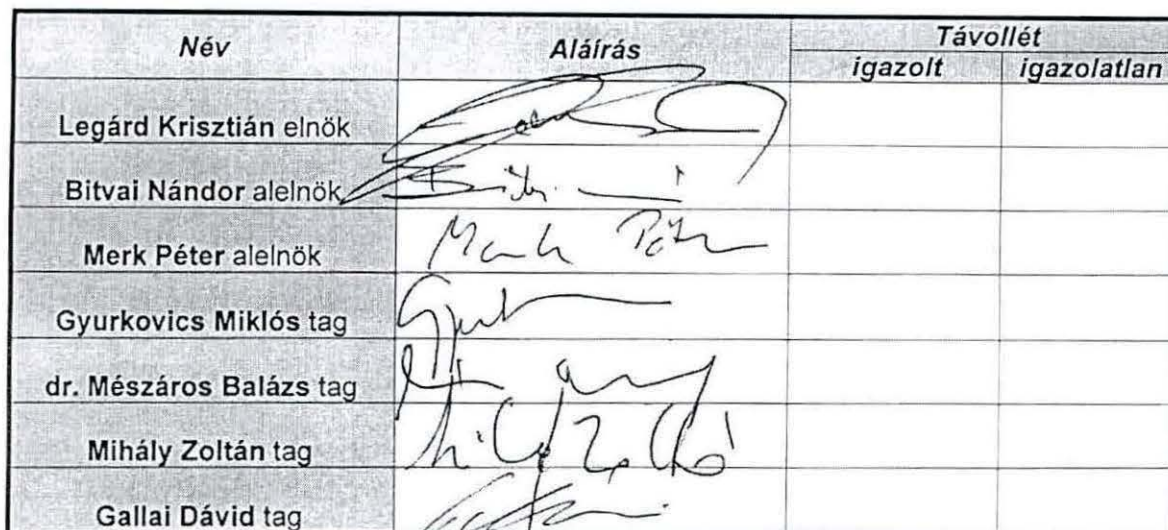 Név Aláírás Távollét
igazolt igazolatlan
Legárd Krisztián elnök
Bitvai Nándor alelnök
Merk Péter alelnök Merk Péter
Gyurkovics Miklós tag
dr. Mészáros Balázs tag
Mihály Zoltán tag
Gallai Dávid tag